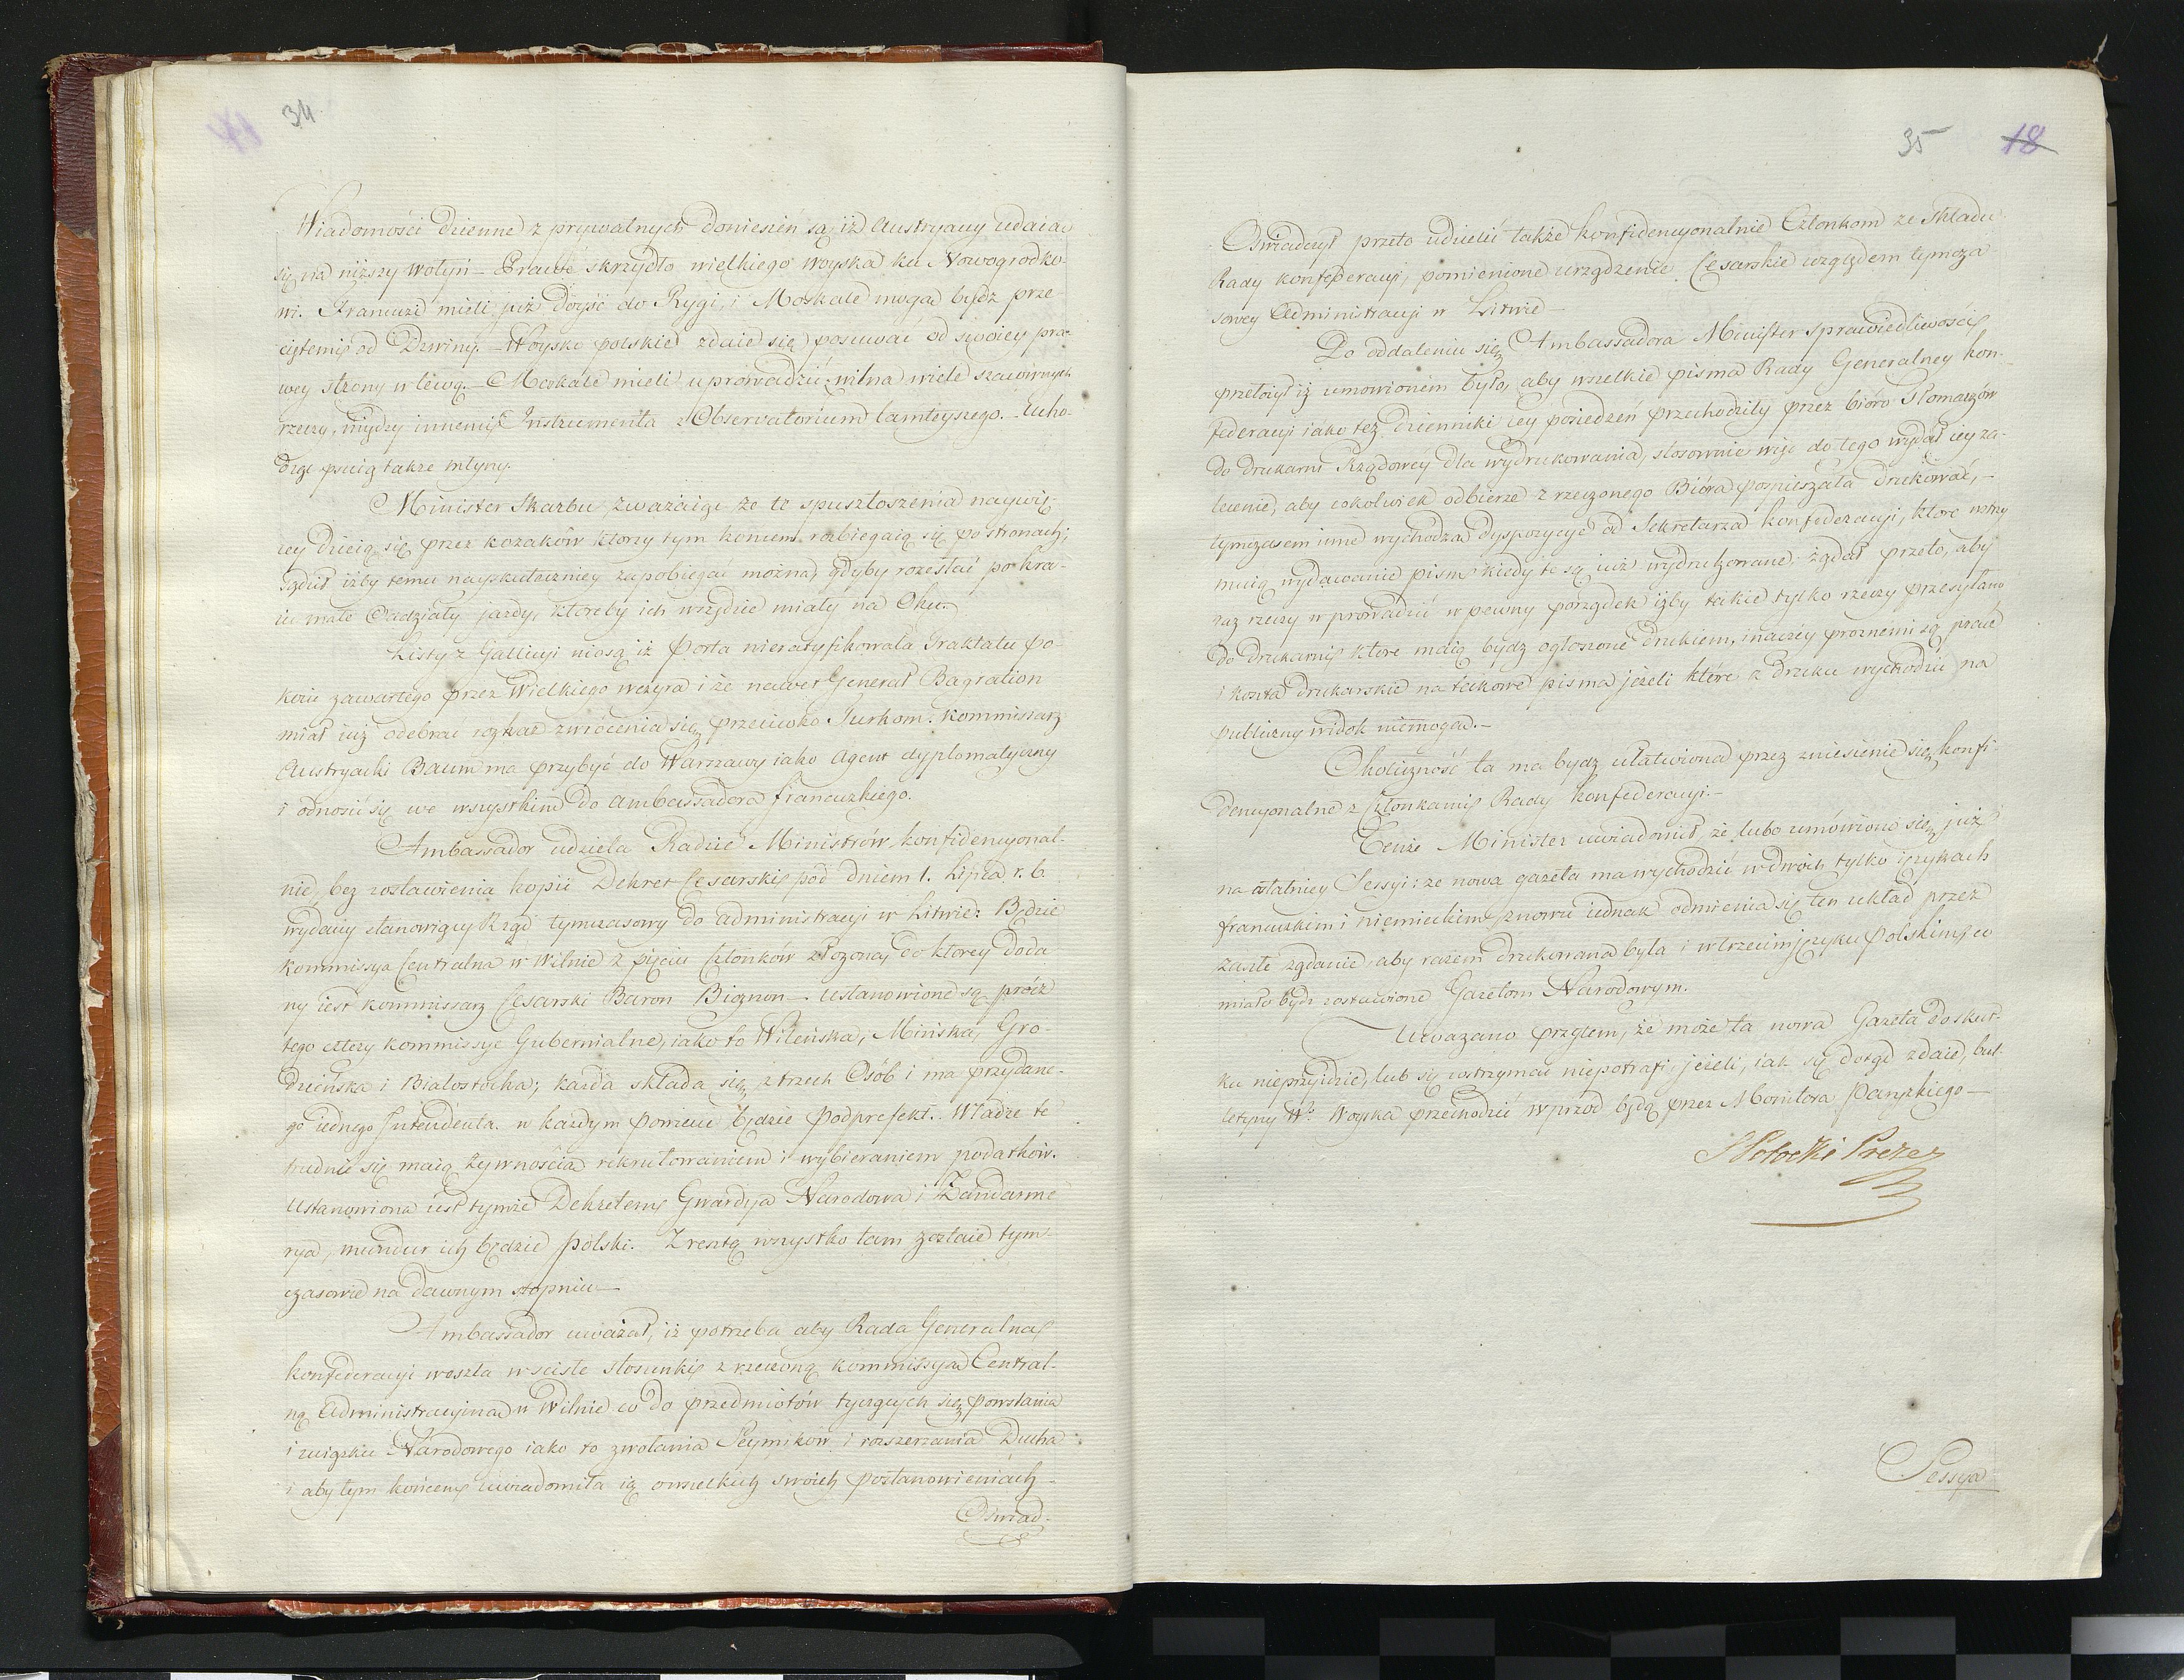 34
Wiadomości dzienne z prywatnych doniesień są iż Austryacy udaiąc
się na niższy Wołyń – Prawe skrzydło wielkiego woyska ku Nowogrodko-
wi. Francuzi mieli już doyść do Rygi, i Moskale mogą bydz prze-
ciętemi od Dzwiny. – Woysko polskie zdaie się posuwać od swoiey pra-
wey strony w lewą. – Moskale mieli uprowadzić z Wilna wiele szacownych
rzeczy, między innemi Instrumenta z Observatorium tamteyszego. – Ucho-
dząc psuią także młyny.
Minister Skarbu zważaiąc że te spustoszenia naywię-
cey dzieią się przez kozaków którzy tym końcem rozbiegaią się po stronach;
sądził iżby temu nayskuteczniey zapobiegać można, gdyby rozesłać po kra-
iu małe Oddziały jazdy, któreby ich wszędzie miały na Oku.
Listy z Gallicyi niosą iż Porta nieratyfikowała Traktatu po-
koiu zawartego przez Wielkiego wezyra i że nawet Generał Bagration
miał iuż odebrać rozkaz zwrócenia się przeciwko Turkom. Kommissarz
Austryacki Baum ma przybyć do Warszawy iako Agent dyplomatyczny
i odnosić się we wszystkim do Ambassadora francuzkiego.
Ambassador udziela Radzie Ministrów konfidencyonal-
nie, bez zostawienia kopii Dekret Cesarski pod dniem 1. Lipca r. b.
wydany stanowiący Rząd tymczasowy do administracyi w Litwie: Będzie
kommissya Centralna w Wilnie z pięciu Członków złożona, do którey doda-
ny iest kommissarz Cesarski Baron Bignon –. Ustanowione są prócz
tego cztery kommissye Gubernialne, iako to Wileńska, Mińska, Gro-
dzieńska i Białostocka; każda składa się z trzech Osób i ma przydane-
go iednego Intendenta. w każdym Powiecie będzie Podprefekt. Władze te
trudnić się maią żywnością rekrutowaniem i wybieraniem podatków.
Ustanowiona iest tymże Dekretem Gwardya Narodowa i Żandarme-
rya, mundur ich będzie polski. Zresztą wszystko tam zostaie tym-
czasowie na dawnym stopniu –
Ambassador uważał, iż potrzeba aby Rada Generalna
konfederacyi weszła w ścisłe stosunki z rzeczoną kommissyą Central-
ną Administracyiną w Wilnie co do przedmiotów tyczących się powstania
i związku Narodowego iako to zwołania Seymików i rozszerzania Ducha
i aby tym końcem uwiadomiła ią o wszelkich swoich postanowieniach –
Oświad-
35 18
Oświadczył przeto udzielić także konfidencyonalnie Członkom ze Składu
Rady konfederacyi, pomienione urządzenie Cesarskie względem tymcza-
sowey Administracyi w Litwie –
Po oddaleniu się Ambassadora Minister sprawiedliwości
przełożył iż umowionem było, aby wszelkie pisma Rady Generalney kon-
federacyi iako też dzienniki iey posiedzeń przechodziły przez bióro Tłomaczów
do drukarni Rządowey dla wydrukowania, stosownie więc do tego wydał iey za-
lecenie, aby cokolwiek odbierze z rzeczonego Bióra pośpieszała drukować, –
tymczasem inne wychodzą dyspozycye od Sekretarza konfederacyi, które wstrzy-
muią wydawanie pism kiedy te są iuż wydrukowane. żądał przeto, aby
raz rzeczy wprowadzić w pewny porządek iżby takie tylko rzeczy przesyłano
do drukarni które maią bydz ogłoszone drukiem, inaczey proznemi są prace
i koszta drukarskie na takowe pisma jeżeli które z druku wychodzić na
publiczny widok niemogą. –
Okoliczność ta ma bydz ułatwiona przez zniesienie się konfi-
dencyonalne z Członkami Rady konfederacyi. –
Tenże Minister uwiadomił, że lubo umówiono się już
na ostatniey Sessyi: że nowa gazeta ma wychodzić w dwóch tylko ięzykach
francuzkim i niemieckim, znowu iednak odmienia się ten układ przez
zaszłe żądanie, aby razem drukowana była i w trzecim języku Polskim, co
miało bydz zostawione Gazetom Narodowym.
Uważano przytem, że może ta nowa Gazeta do skut-
ku nieprzyidzie, lub się utrzymać niepotrafi, jeżeli, iak się dotąd zdaie, bul-
letyny Wo. Woyska przechodzić wprzód będą przez Monitora Paryzkiego –
S Potocki Prezes
Sessya